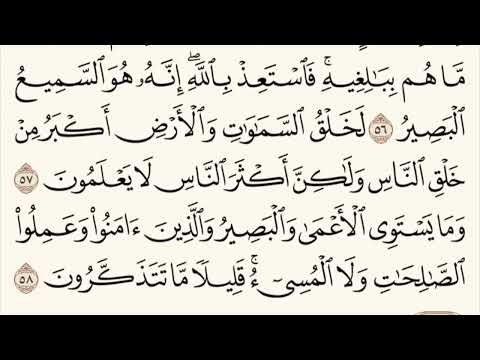 مَّا هُم بِبَـٰلِغِيهِ ۚ فَٱسْتَعِذْ بِٱللَّهِ ۖ إِنَّهُۥ هُوَ ٱلسَّمِيعُ
ٱلْبَصِيرُ ٥٦ لَخَلْقُ ٱلسَّمَـٰوَٰتِ وَٱلْأَرْضِ أَكْبَرُ مِنْ
خَلْقِ ٱلنَّاسِ وَلَـٰكِنَّ أَكْثَرَ ٱلنَّاسِ لَا يَعْلَمُونَ ٥٧
وَمَا يَسْتَوِى ٱلْأَعْمَىٰ وَٱلْبَصِيرُ وَٱلَّذِينَ ءَامَنُوا۟ وَعَمِلُوا۟
ٱلصَّـٰلِحَـٰتِ وَلَا ٱلْمُسِىٓءُ ۚ قَلِيلًا مَّا تَتَذَكَّرُونَ ٥٨